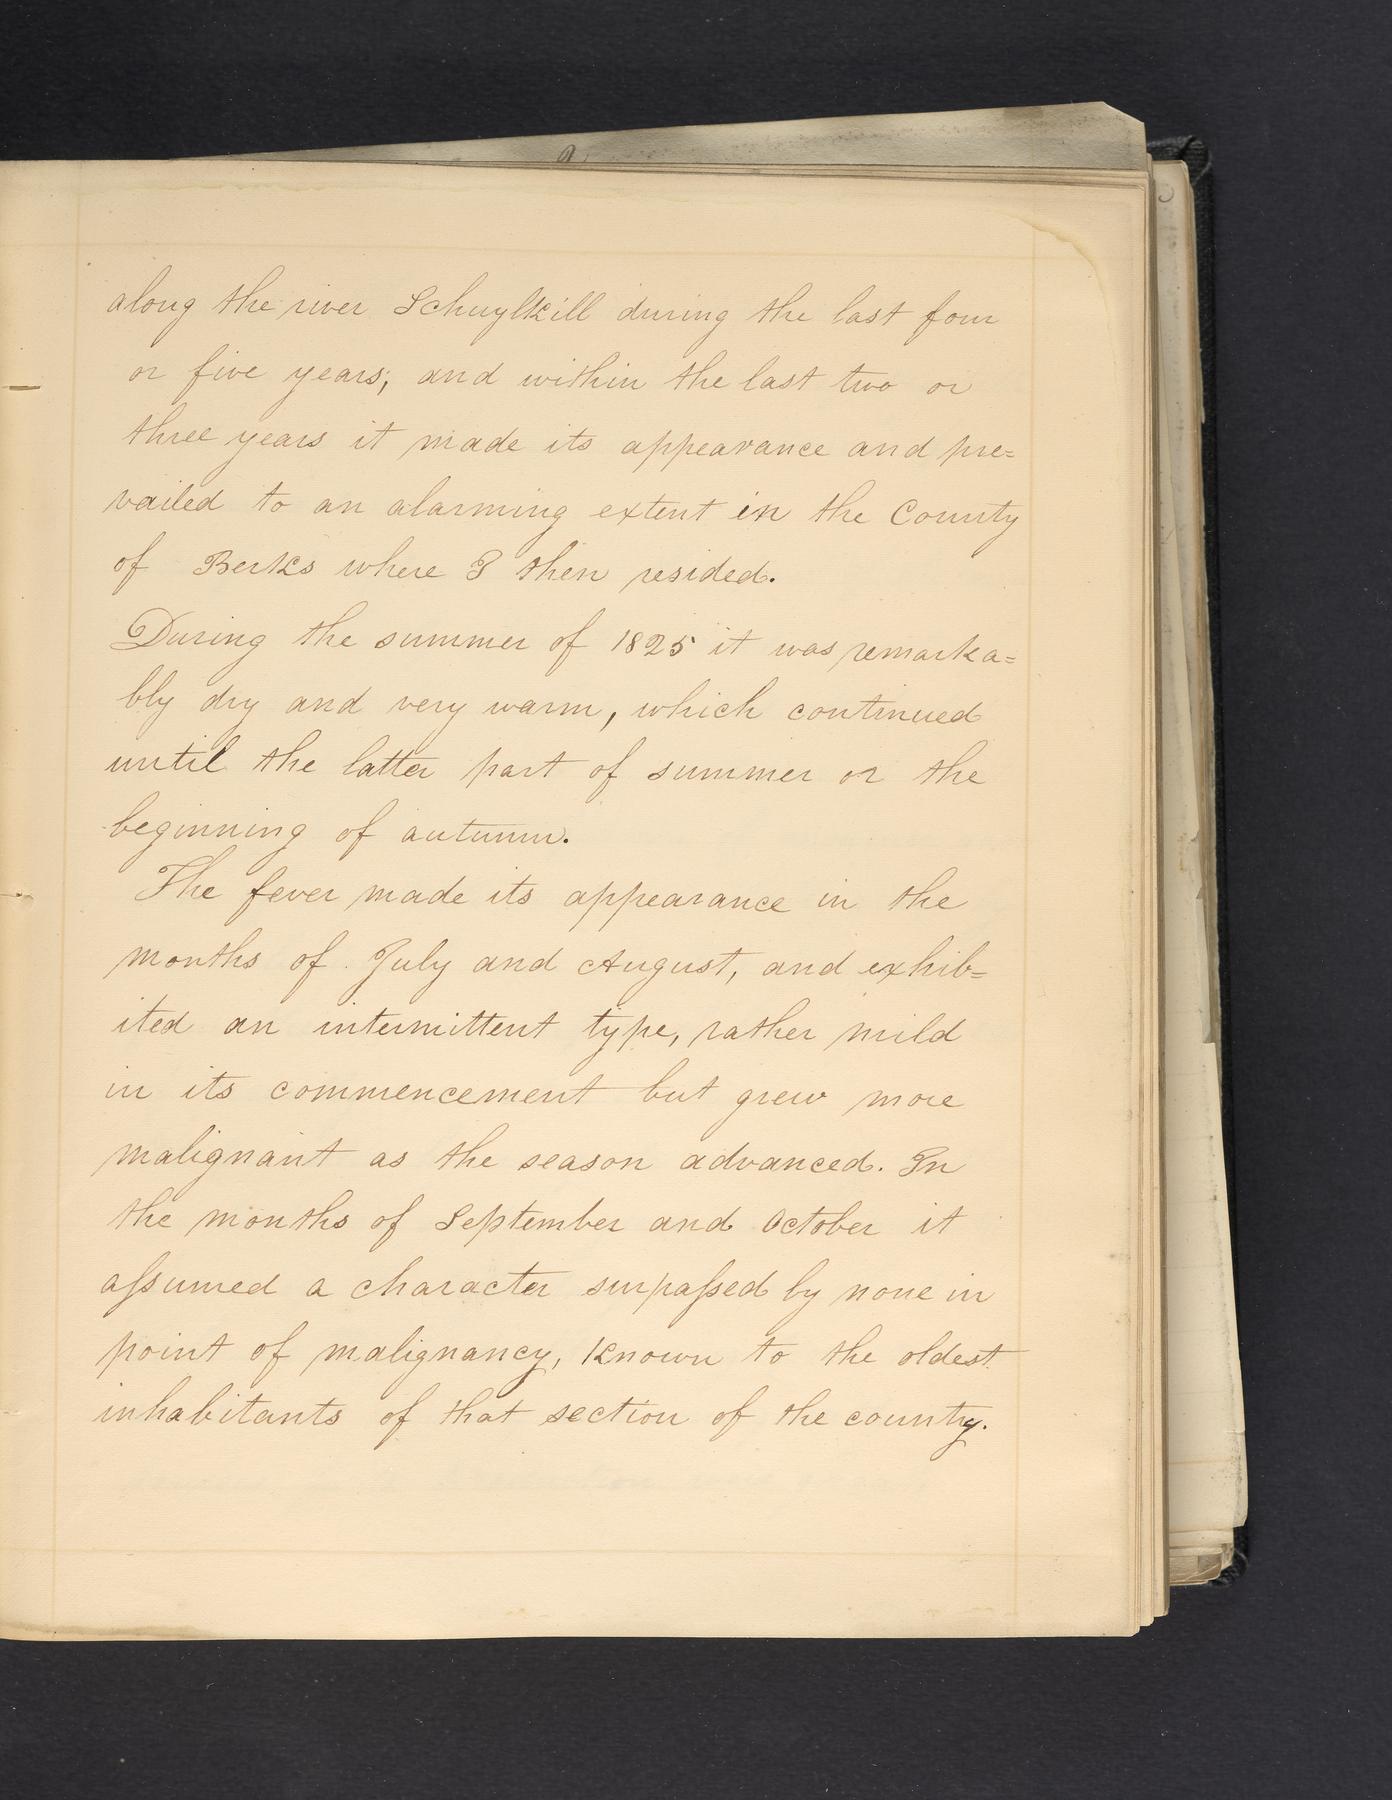 along the river Schuylkill during the last four
or five years; and within the last two or
three years it made its appearance and pre=
vailed to an alarming extent in the County
of Berks where I then resided.
During the summer of 1825 it was remarka=
bly dry and very warm, which continued
until the latter part of summer or the
beginning of autumn.
The fever made its appearance in the
months of July and August, and exhib=
ited an intermittent type, rather mild
in its commencement but grew more
malignant as the season advanced. In
the months of September and October it
aſsumed a character surpaſsed by none in
point of malignancy, known to the oldest
inhabitants of that section of the county.